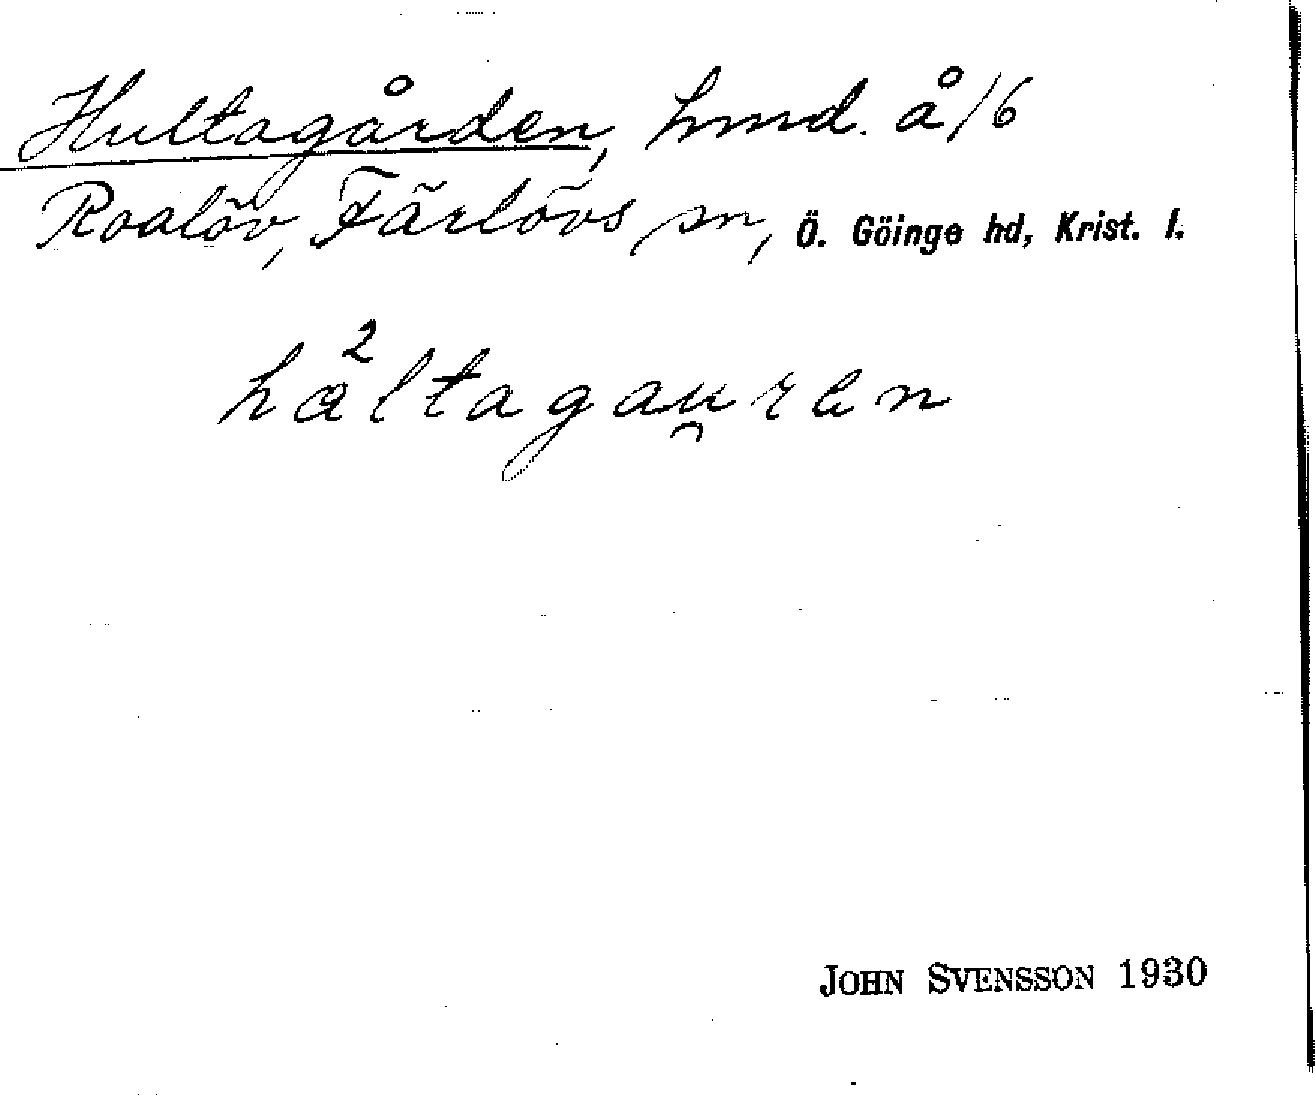 Hultagården, hmd. å/6
Roalöv, Färlövs sn, Ö. Göinge hd, Krist. l.
hα²ltagau̯ren
JOHN SVENSSON 1930